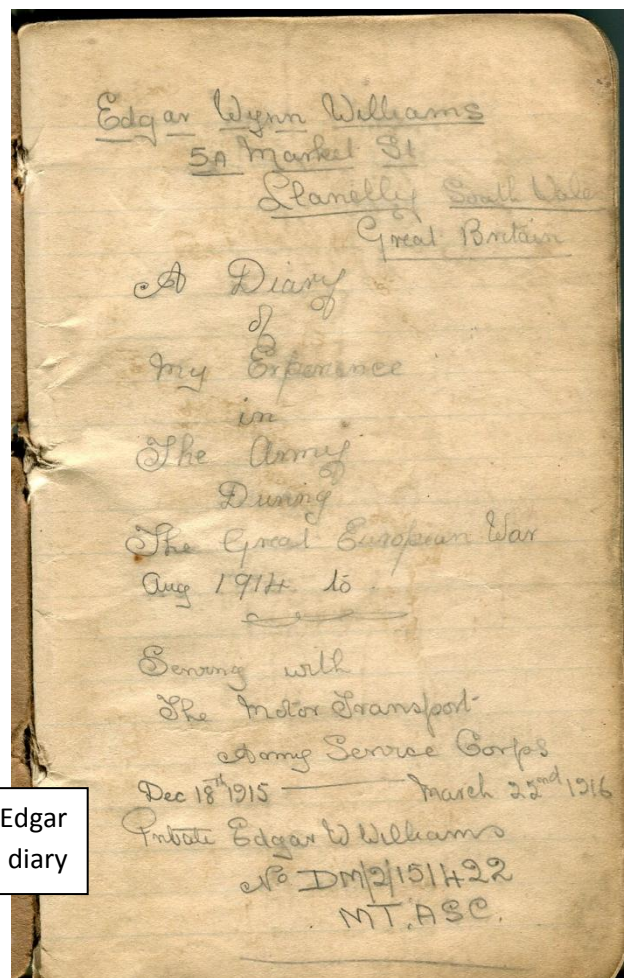 Edgar Wynn Williams
5A Market St
Llanelly South Wale
Great Britain
A Diary
of
My Experience
in
The Army
During
The Great European War
Aug 1914 to
Serving with
The Motor Transport
Army Service Corps
Dec 18th 1915 — March 22nd 1916
Private Edgar W Williams
No DM/2/151422
MT. ASC.
Edgar
diary